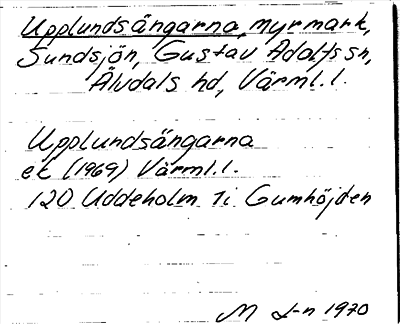 Upplundsängarna, myrmark,
Sundsjön, Gustav Adolfs sn,
Älvdals hd, Värml. l.
Upplundsängarna
ek (1969) Värml. l.
120 Uddeholm 1i Gumhöjden
M J-n 1970